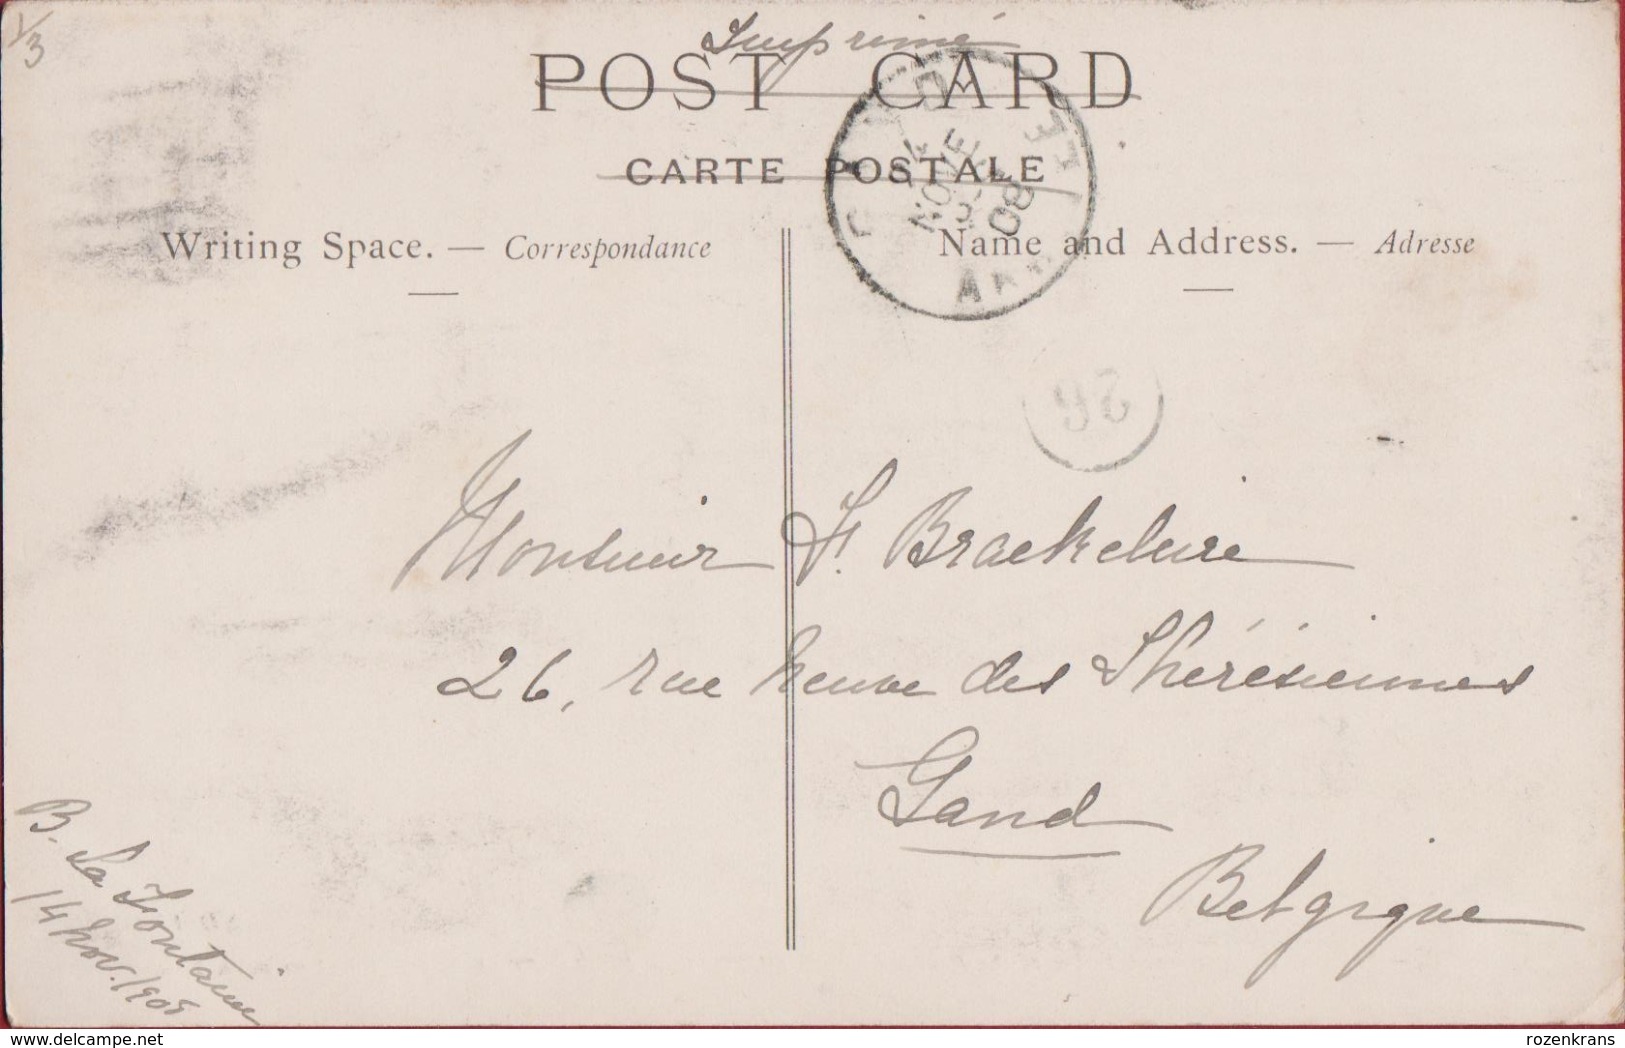 1/3
Imprimé
POST CARD
CARTE POSTALE
Writing Space. — Correspondance
Name and Address. — Adresse
NOVE
08
26
Monsieur F. Braekeleire
26, rue neuve des Thérésiennes
Gand
Belgique
B. La Fontaine
14 Nov. 1908
delcampe.net
rozenkrans